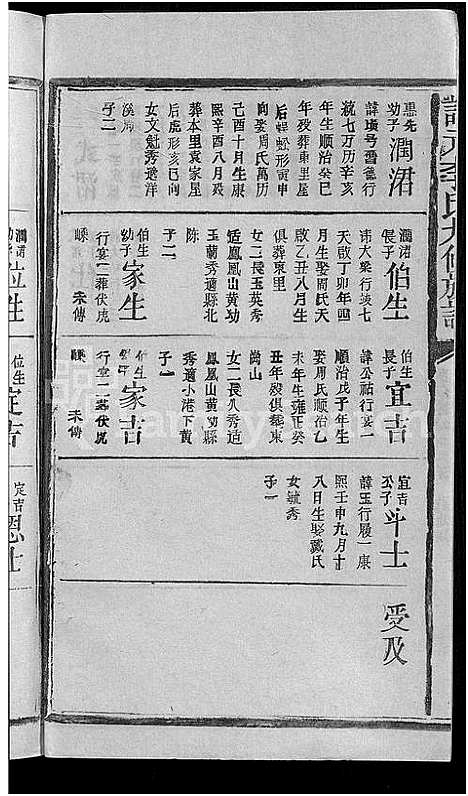 惠先
幼子
潤渚
諱璜号雪巖行
統七万历辛亥
年生順治癸巳
年殁葬東里屋
后蜈蚣形寅申
向娶周氏萬历
己酉十月生康
熙辛酉八月殁
葬本里袁家屋
后虎形亥巳向
女文魁秀適洋
溪
子二
潤渚
長子
伯生
諱大梁行茨七
天啟丁卯年四
月生娶周氏天
啟乙丑八月生
俱葬東里
女二長玉英秀
适鳳凰山黄功
玉蘭秀適縣北
陈
子二
伯生
幼子
家生
行宴二葬伏虎
嵊
未傳
伯生
長子
宜吉
諱公祐行宴一
順治戊子年生
娶周氏順治乙
未年生雍正癸
丑年殁俱葬東
崗山
女二長八秀适
鳳凰山黄功縣
秀適小港下黄
子一
家吉
行宴二葬伏虎
嵊
未傳
宜吉
公子
斗士
諱玉行履一康
熙壬申九月十
八日生娶戴氏
女毓秀
子一
受及
潤渚
幼子
位生
位生
定吉
定吉
恩士